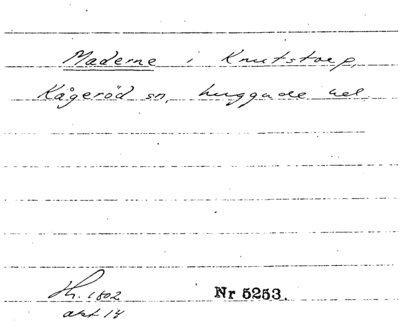 Maderne i Knutstorp,
Kågeröd sn, huggude ved.
Hr. 1802
akt 14
Nr 5253.